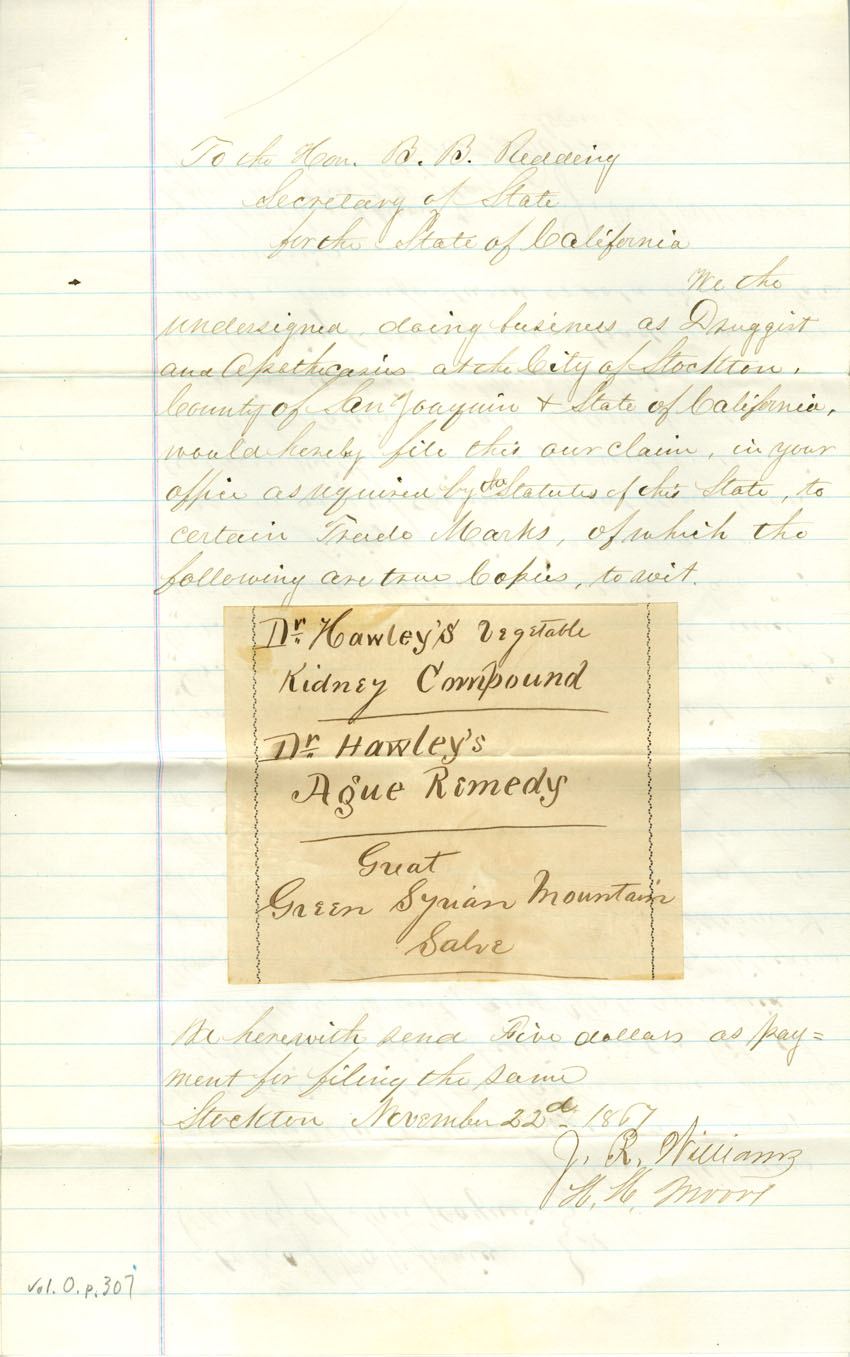 To the Hon. B. B. Redding
Secretary of State
for the State of California
We the
undersigned, doing business as Druggist
and Apothecaries at the City of Stockton,
County of San Joaquin & State of California,
would hereby file this our claim, in your
office as required by the Statutes of this State, to
certain Trade Marks, of which the
following are true Copies, to wit.
Dr. Hawley's Vegetable
Kidney Compound
Dr. Hawley's
Ague Remedy
Great
Green Syrian Mountain
Salve
We herewith send Five dollars as pay=
ment for filing the same
Stockton November 22d 1867
J. R. Williams
H. H. Moore
Vol. O. p. 307